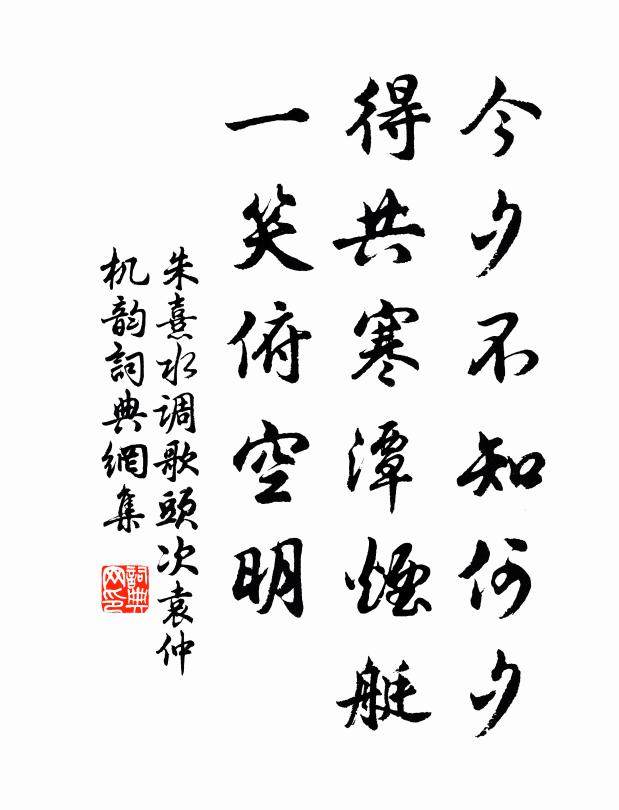 今夕不知何夕
得共寒潭煙艇
一笑俯空明
朱熹水调歌頭次袁仲
机韵詞典網集
詞典
网印